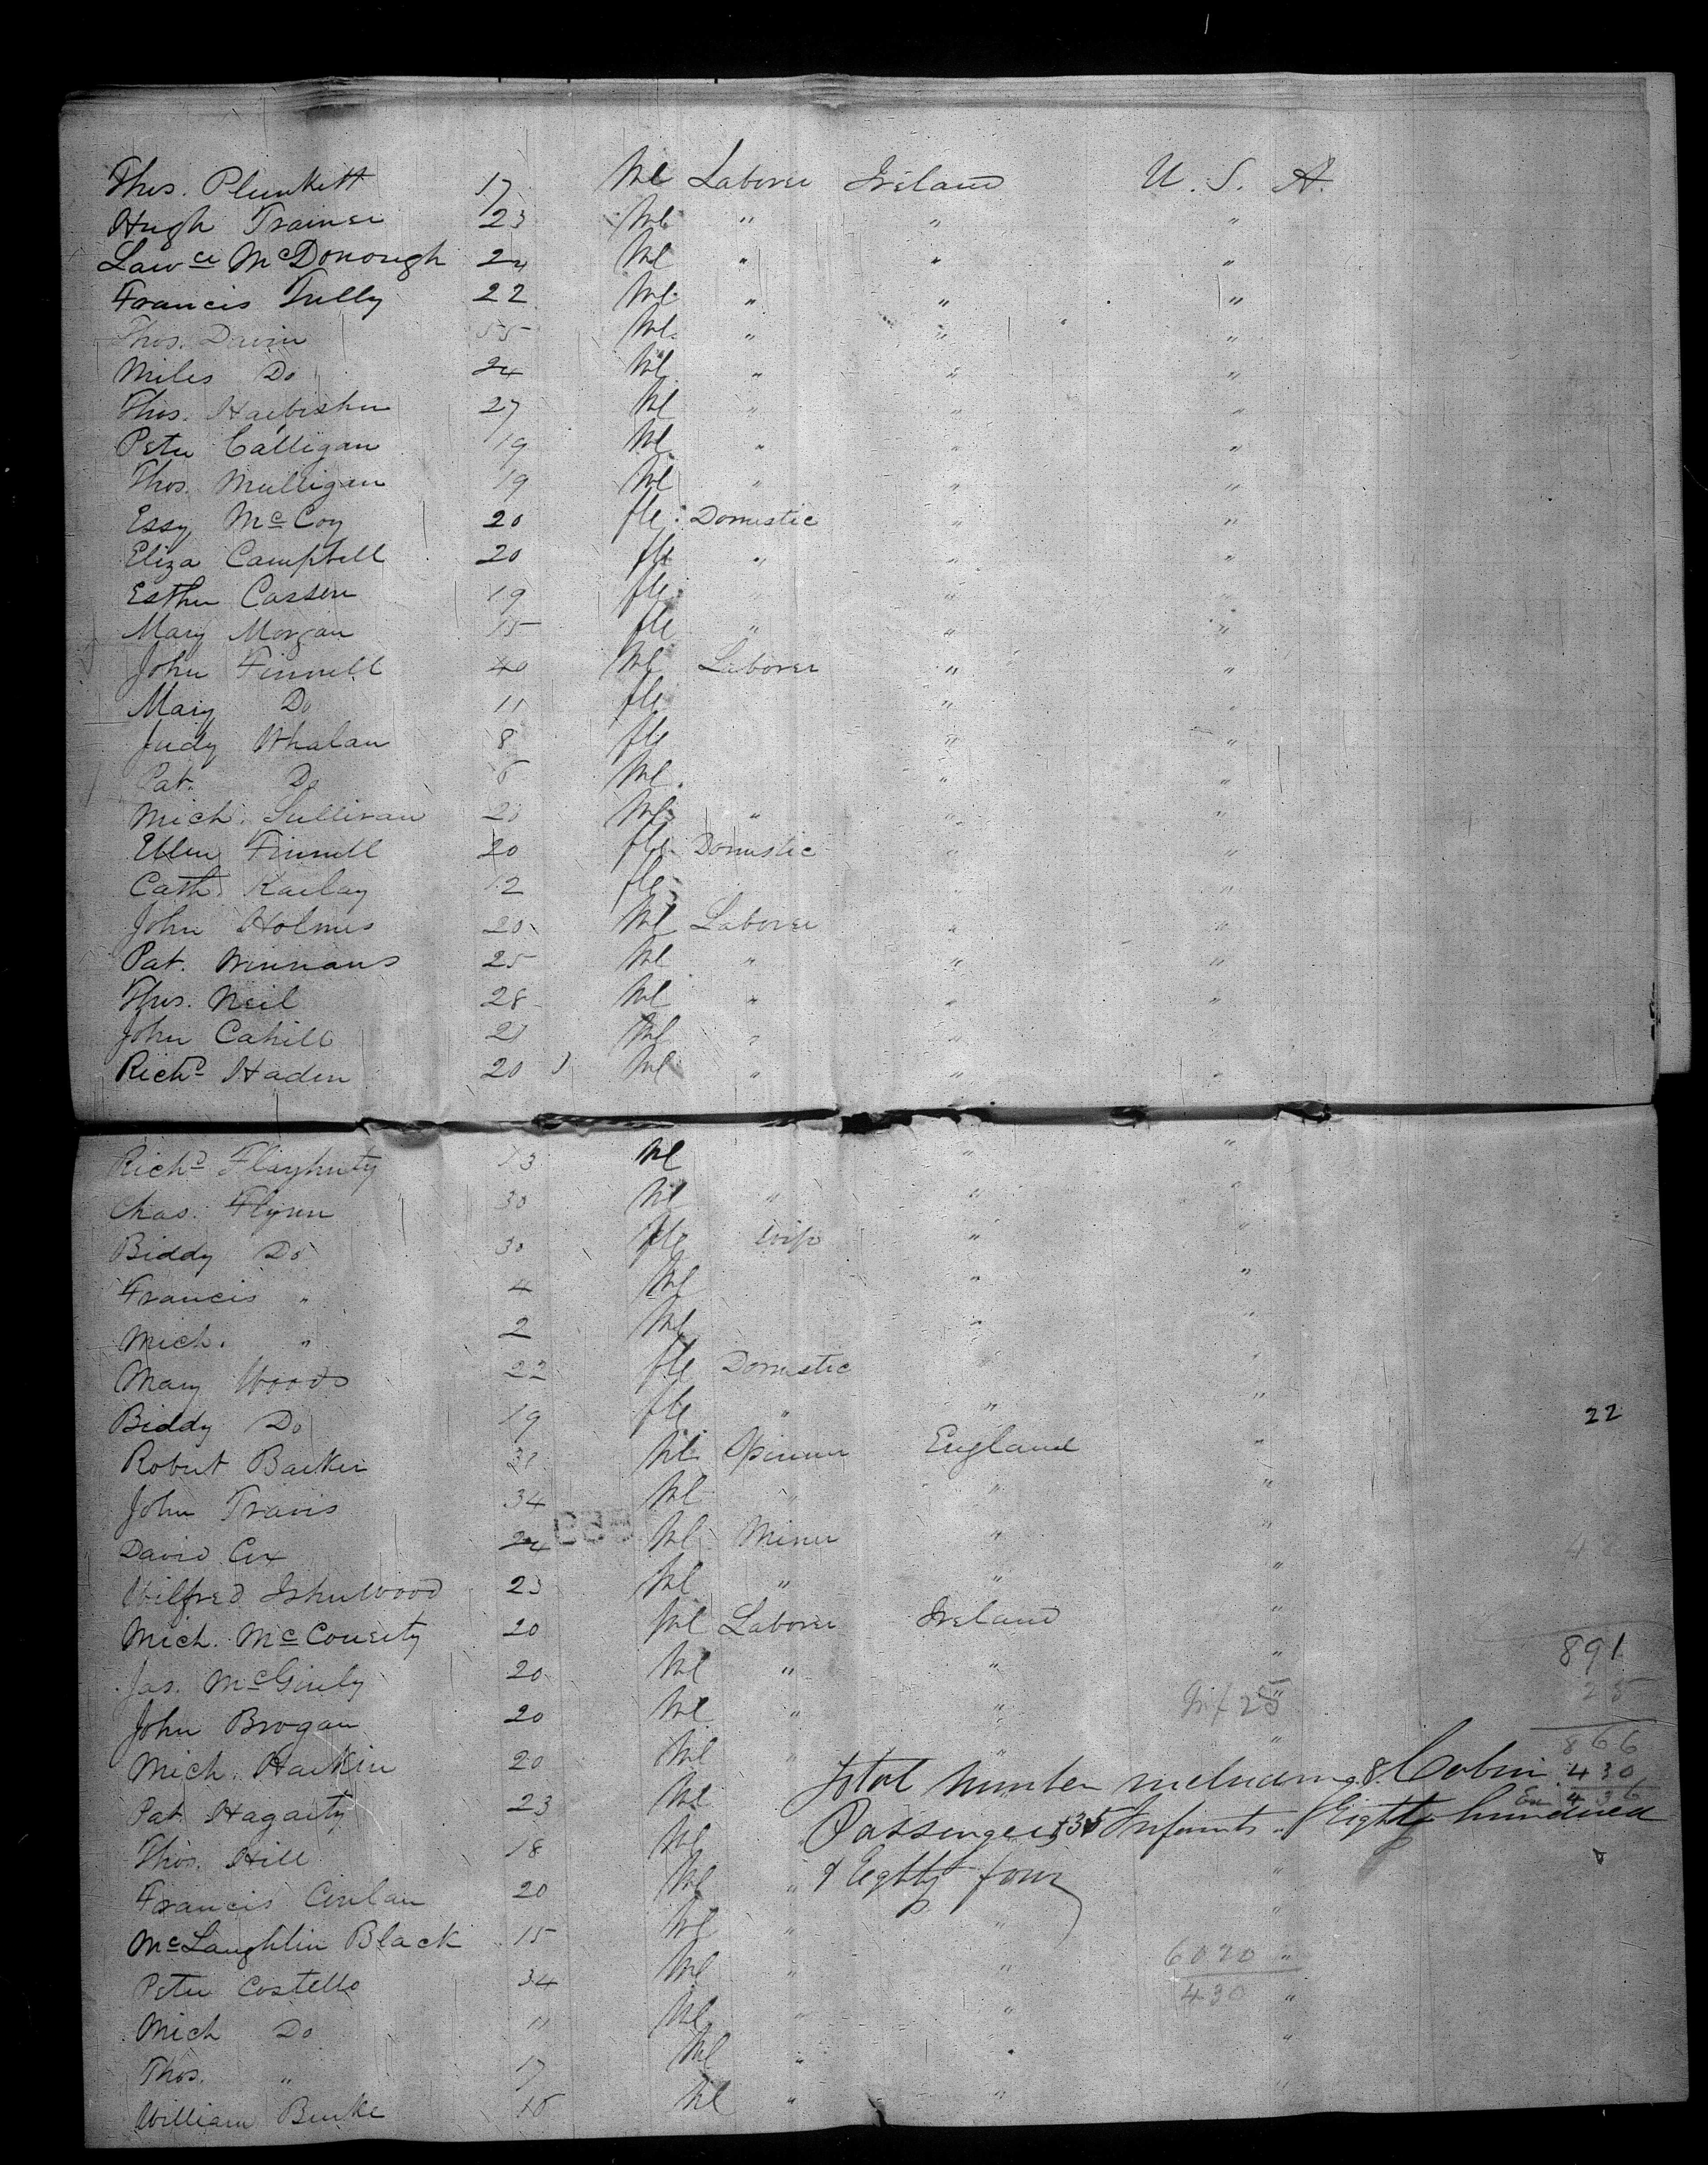 Thos. Plunkett 17 Ml Laborer Ireland U. S. A.
Hugh Trainer 23 Ml " " "
Lawce McDonough 24 Ml " " "
Francis Tully 22 Ml " " "
Thos. Davin 55 Ml " " "
Miles Do 24 Ml " " "
Thos. 27 Ml " " "
Peter Calligan 19 Ml " " "
Thos. Mulligan 19 Ml " " "
Essy McCoy 20 fle Domestic " "
Eliza Campbell 20 fle " " "
Esther Cassen 19 fle " "
Mary Morgan 15 fle " " "
John Finnell 40 Ml Laborer " "
Mary Do 11 fle " "
Judy Whalan 8 fle " "
Pat. Do 6 Ml " "
Mich. Sullivan Ml " " "
Ellen Finnell 20 fle Domestic " "
Cath. 12 fle " "
John Holmes 20 Ml Laborer " "
Pat. Winnans 25 Ml " " "
Thos. Neil 28 Ml " " "
John Cahill 21 Ml " "
Richd Haden 20 Ml " " "
Richd Flaghuty 13 Ml " "
Chas. Flynn 30 Ml " " "
Biddy Do 30 fle wife " "
Francis " 4 Ml " "
Mich. " 2 Ml " "
Mary Woods 22 fle Domestic "
Biddy Do 19 fle " " " 22
Robert Barker 31 Ml Spinner England "
John Travis 34 Ml " " "
David Cox 24 Ml Miner " "
Wilfred Isherwood 23 Ml " " "
Mich. McConerty 20 Ml Laborer Ireland "
Jas. McGinly 20 Ml " " " 891
John Brogan 20 Ml " " Inf 25 25
Mich. Harkin 20 Ml " " " 866
Pat. Hagarty 23 Ml Total number including 8 Cabin 430
436
Thos. Hill 18 Ml " Passengers & 35 Infants Eight hundred
Francis Conlan 20 Ml " & Eighty four "
McLaughlin Black 15 Ml " " "
Peter Costello 34 Ml " " 6020 "
Mich Do 11 Ml " " 430 "
Thos. " 17 Ml " "
William Burke 18 Ml " "